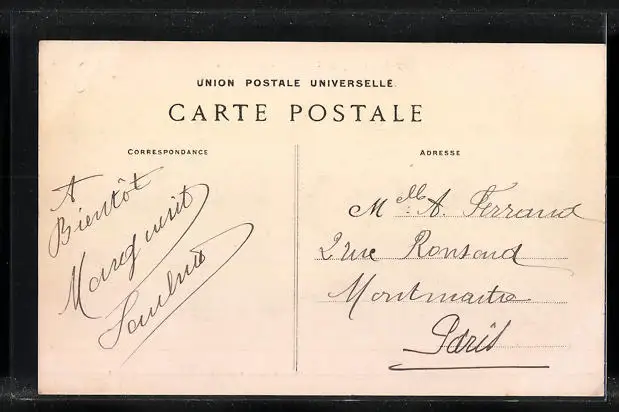 UNION POSTALE UNIVERSELLE.
CARTE POSTALE
CORRESPONDANCE
A
Bientôt
Marguerit
ADRESSE
Melle A. Ferrand
2 rue Ronsard
Montmartre
Paris